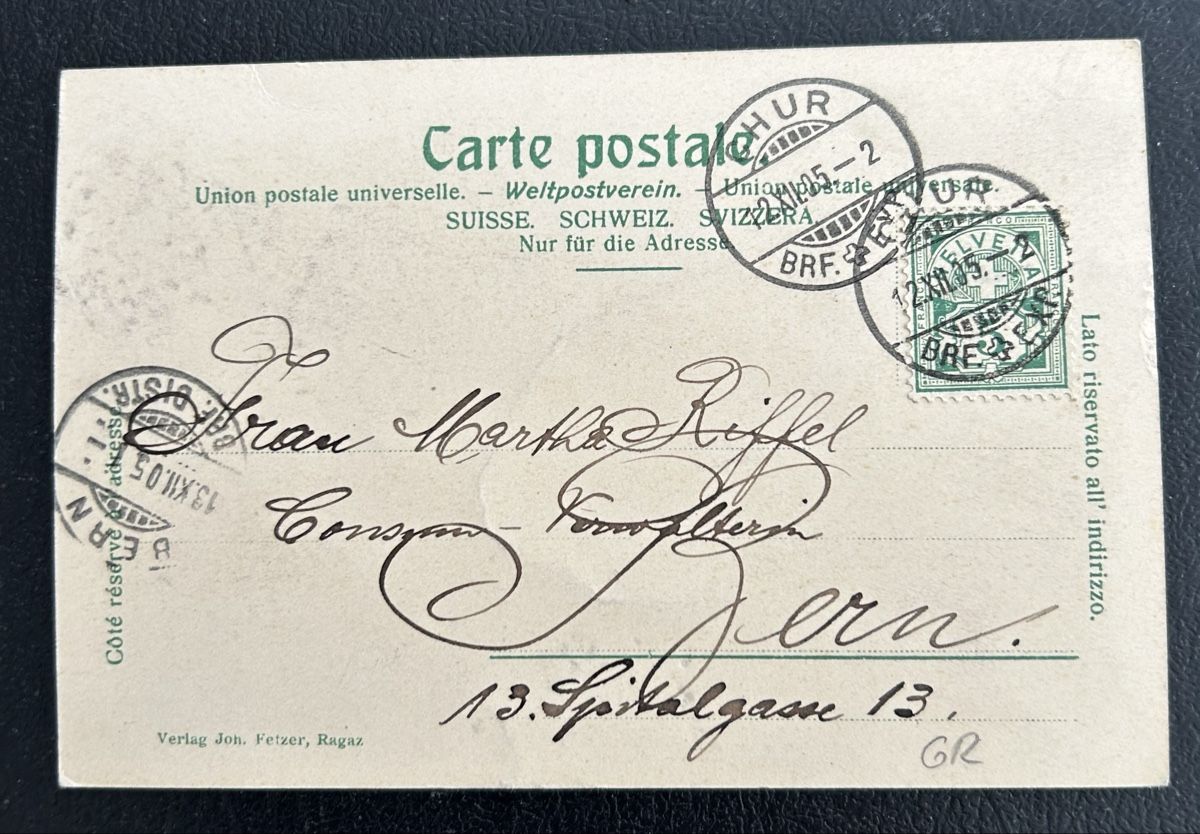 Carte postale
Union postale universelle. – Weltpostverein. – Unione postale universale.
SUISSE. SCHWEIZ. SVIZZERA.
Nur für die Adresse
CHUR
12.XII.05.–2
BRF. EXP.
CHUR
12.XII.05.–2
BRF. EXP.
HELVETIA
FRANCO
Lato riservato all' indirizzo.
Côté réservé à adresse
BERN
13.XII.05
BRF. DISTR.
Frau Martha Riffel
Consum-
Bern.
13. Spitalgasse 13.
Verlag Joh. Fetzer, Ragaz
GR